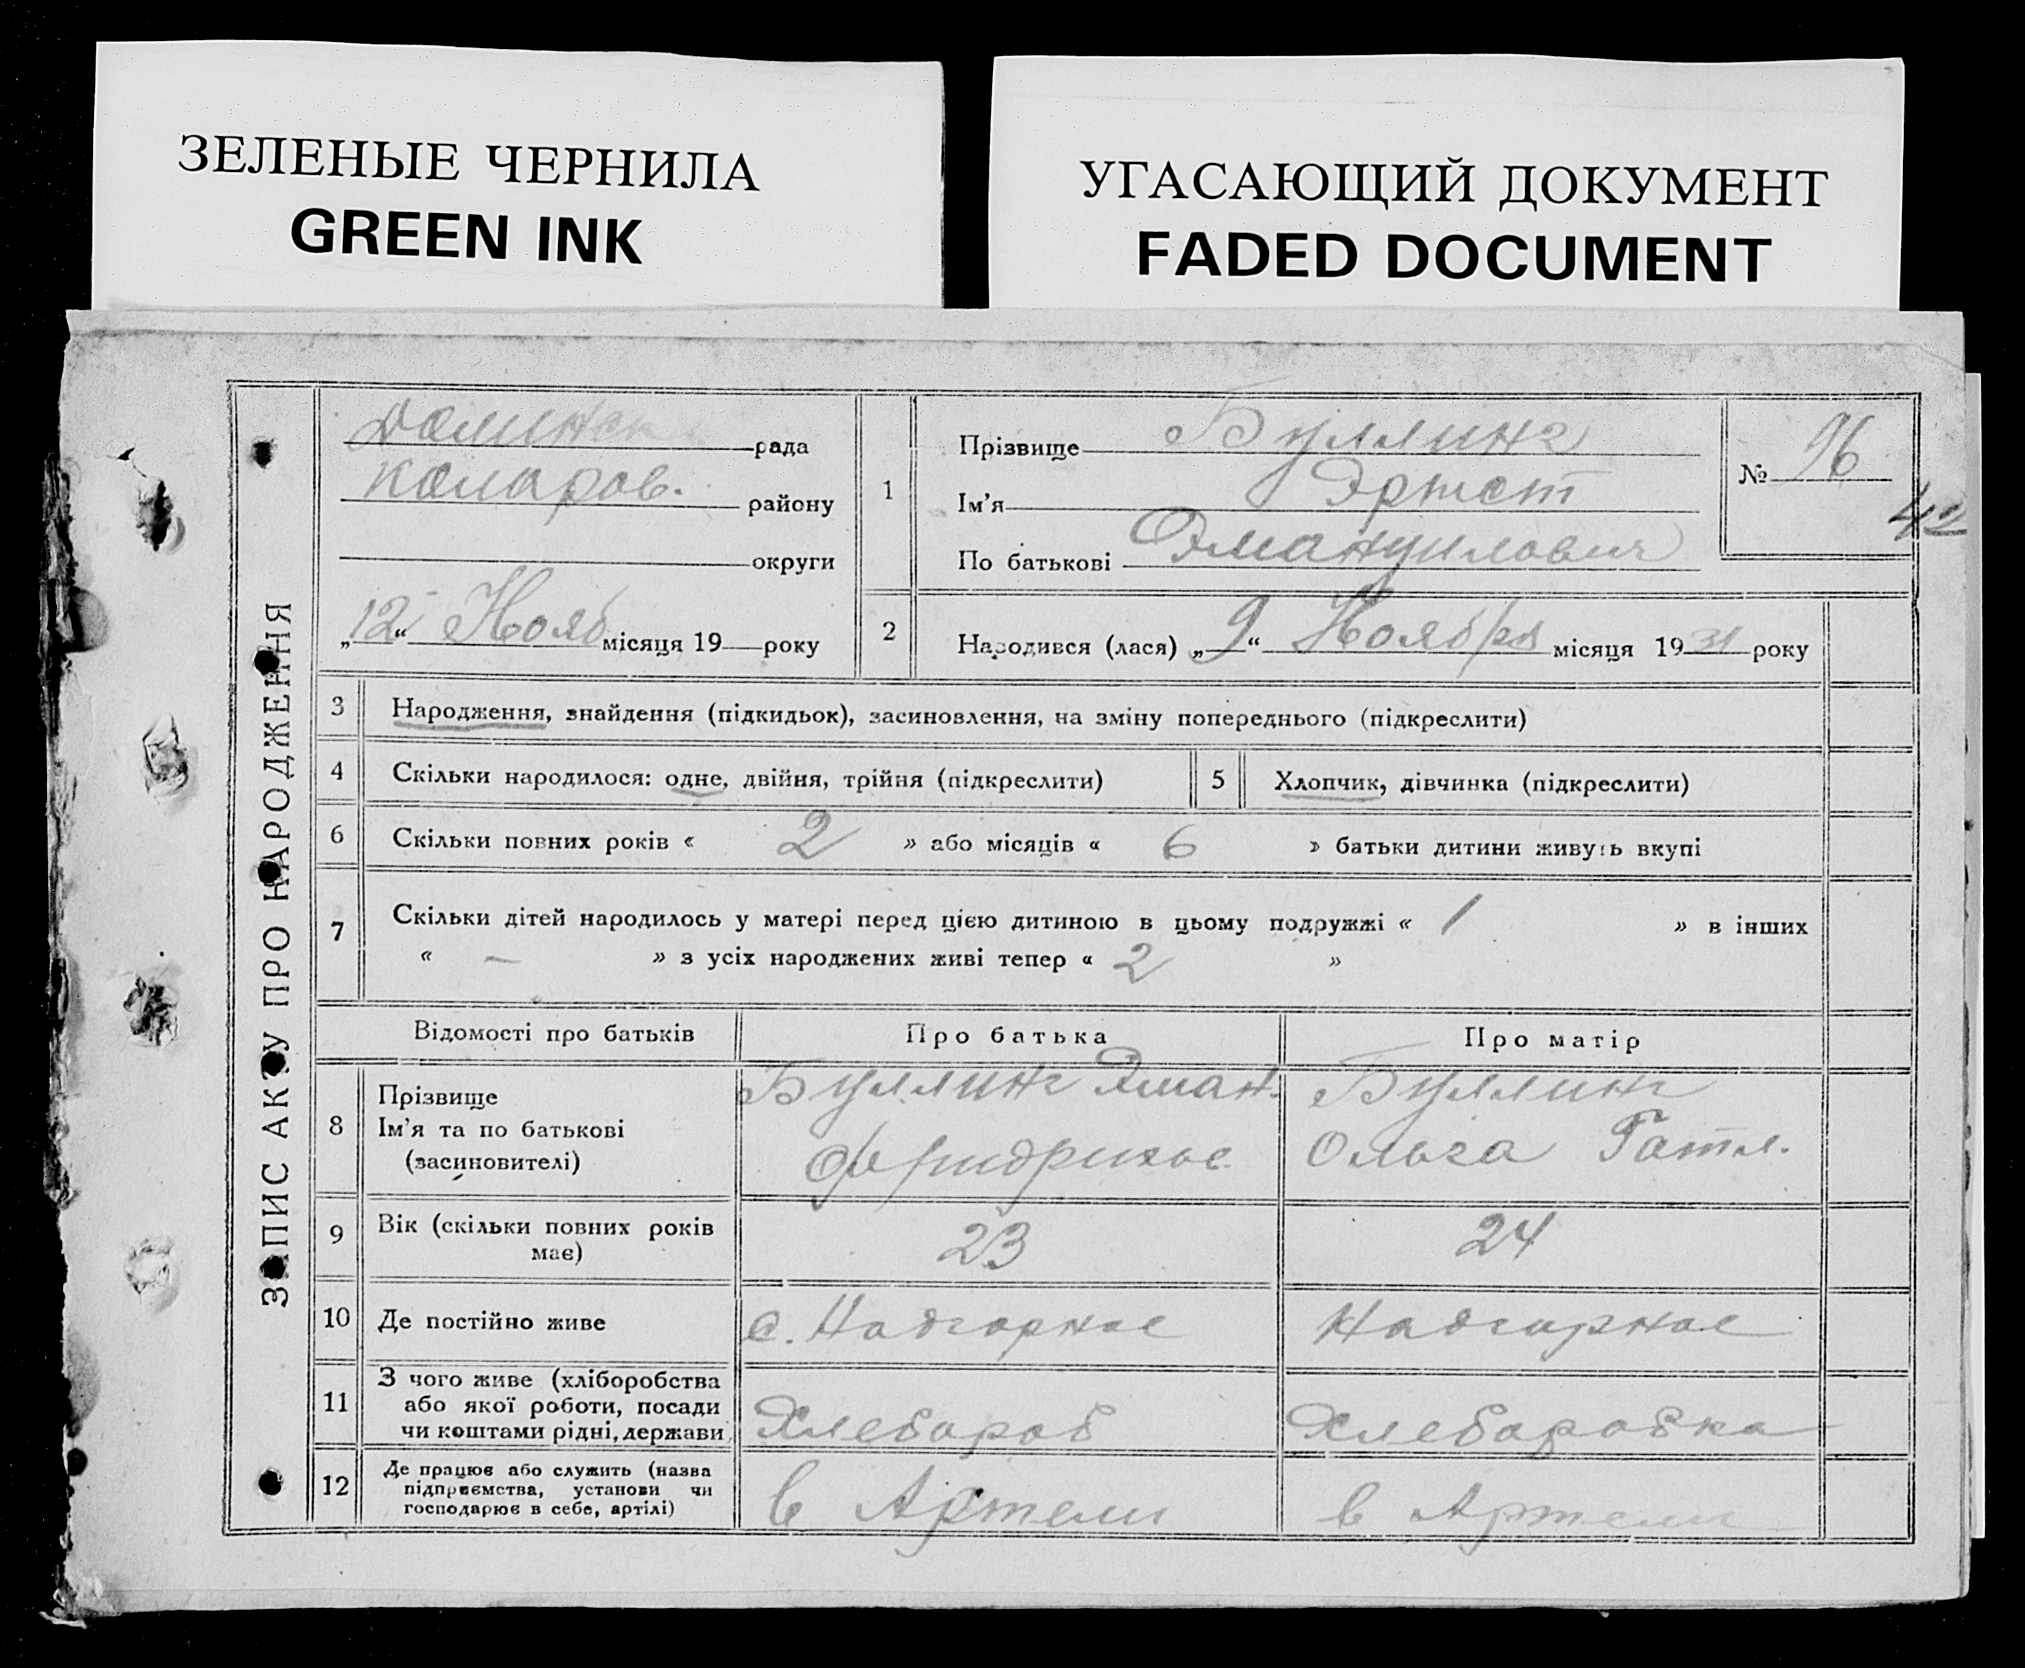 ЗЕЛЕНЫЕ ЧЕРНИЛА
GREEN INK
УГАСАЮЩИЙ ДОКУМЕНТ
FADED DOCUMENT
ЗАПИС АКТУ ПРО НАРОДЖЕННЯ
Долинск рада
Коларов. району
округи
„12“ Нояб місяця 19 року
1
Прізвище Буллинг
Ім’я Эрнст
По батькові Эмануилович
№ 96
42
2
Народився (лася) „9“ Ноября місяця 1931 року
3 Народження, знайдення (підкидьок), засиновлення, на зміну попереднього (підкреслити)
4 Скільки народилося: одне, двійня, трійня (підкреслити) 5 Хлопчик, дівчинка (підкреслити)
6 Скільки повних років « 2 » або місяців « 6 » батьки дитини живуть вкупі
7 Скільки дітей народилось у матері перед цією дитиною в цьому подружжі « 1 » в інших
« — » з усіх народжених живі тепер « 2 »
Відомості про батьків Про батька Про матір
8 Прізвище
Ім’я та по батькові
(засиновителі)
Буллинг Эман.
Фридрихов.
Буллинг
Ольга Готл.
9 Вік (скільки повних років
має)
23 24
10 Де постійно живе с. Надгорное Надгорное
11 З чого живе (хліборобства
або якої роботи, посади
чи коштами рідні, держави
Хлебороб Хлеборобка
12 Де працює або служить (назва
підприємства, установи чи
господарює в себе, артілі)
в Артели в Артели